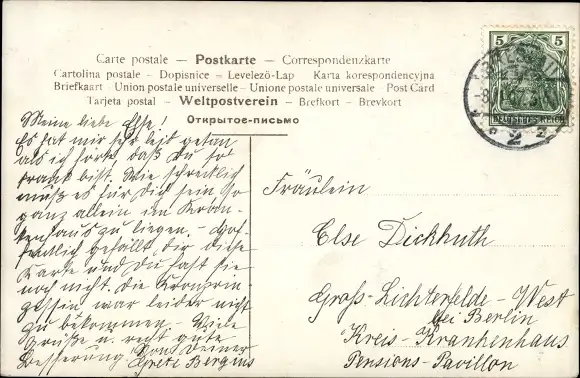 Carte postale — Postkarte — Correspondenzkarte
Cartolina postale – Dopisnice – Levelező-Lap Karta korespondencyjna
Briefkaart Union postale universelle – Unione postale universale – Post Card
Tarjeta postal – Weltpostverein – Brefkort – Brevkort
Открытое-письмо
5 5
DEUTSCHES REICH
2
Meine liebe Else!
Es hat mir sehr leid getan
als ich hörte, daß du so
krank bist. Wie schrecklich
muß es für Dich sein so
ganz allein im Kran-
kenhaus zu liegen. – Hof-
fentlich gefällt dir diese
Karte und du hast sie
noch nicht. die Kronprin-
zessin, war leider nicht
zu bekommen. Viele
Grüße u. recht gute
Besserung. Von Deiner
Grete Bergius
Fräulein
Else Dickhuth
Groß-Lichterfelde-West
bei Berlin
Kreis-Krankenhaus
Pensions-Pavillon